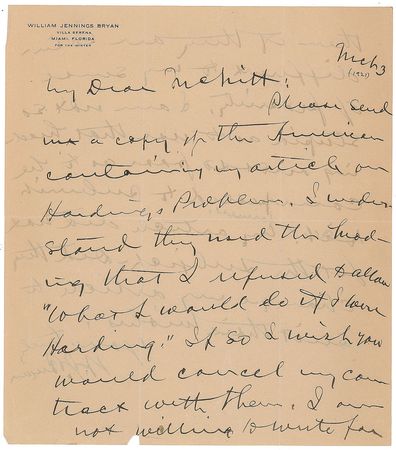 WILLIAM JENNINGS BRYAN
VILLA SERENA
MIAMI, FLORIDA
FOR THE WINTER
Mch 3
(1921)
My Dear McNitt:
Please send
me a copy of the American
containing my article on
Hardings Problem. I under-
stand they used the head-
ing that I refused to allow
"What I would do if I were
Harding." If so I wish you
would cancel my con
tract with them. I am
not willing to write for